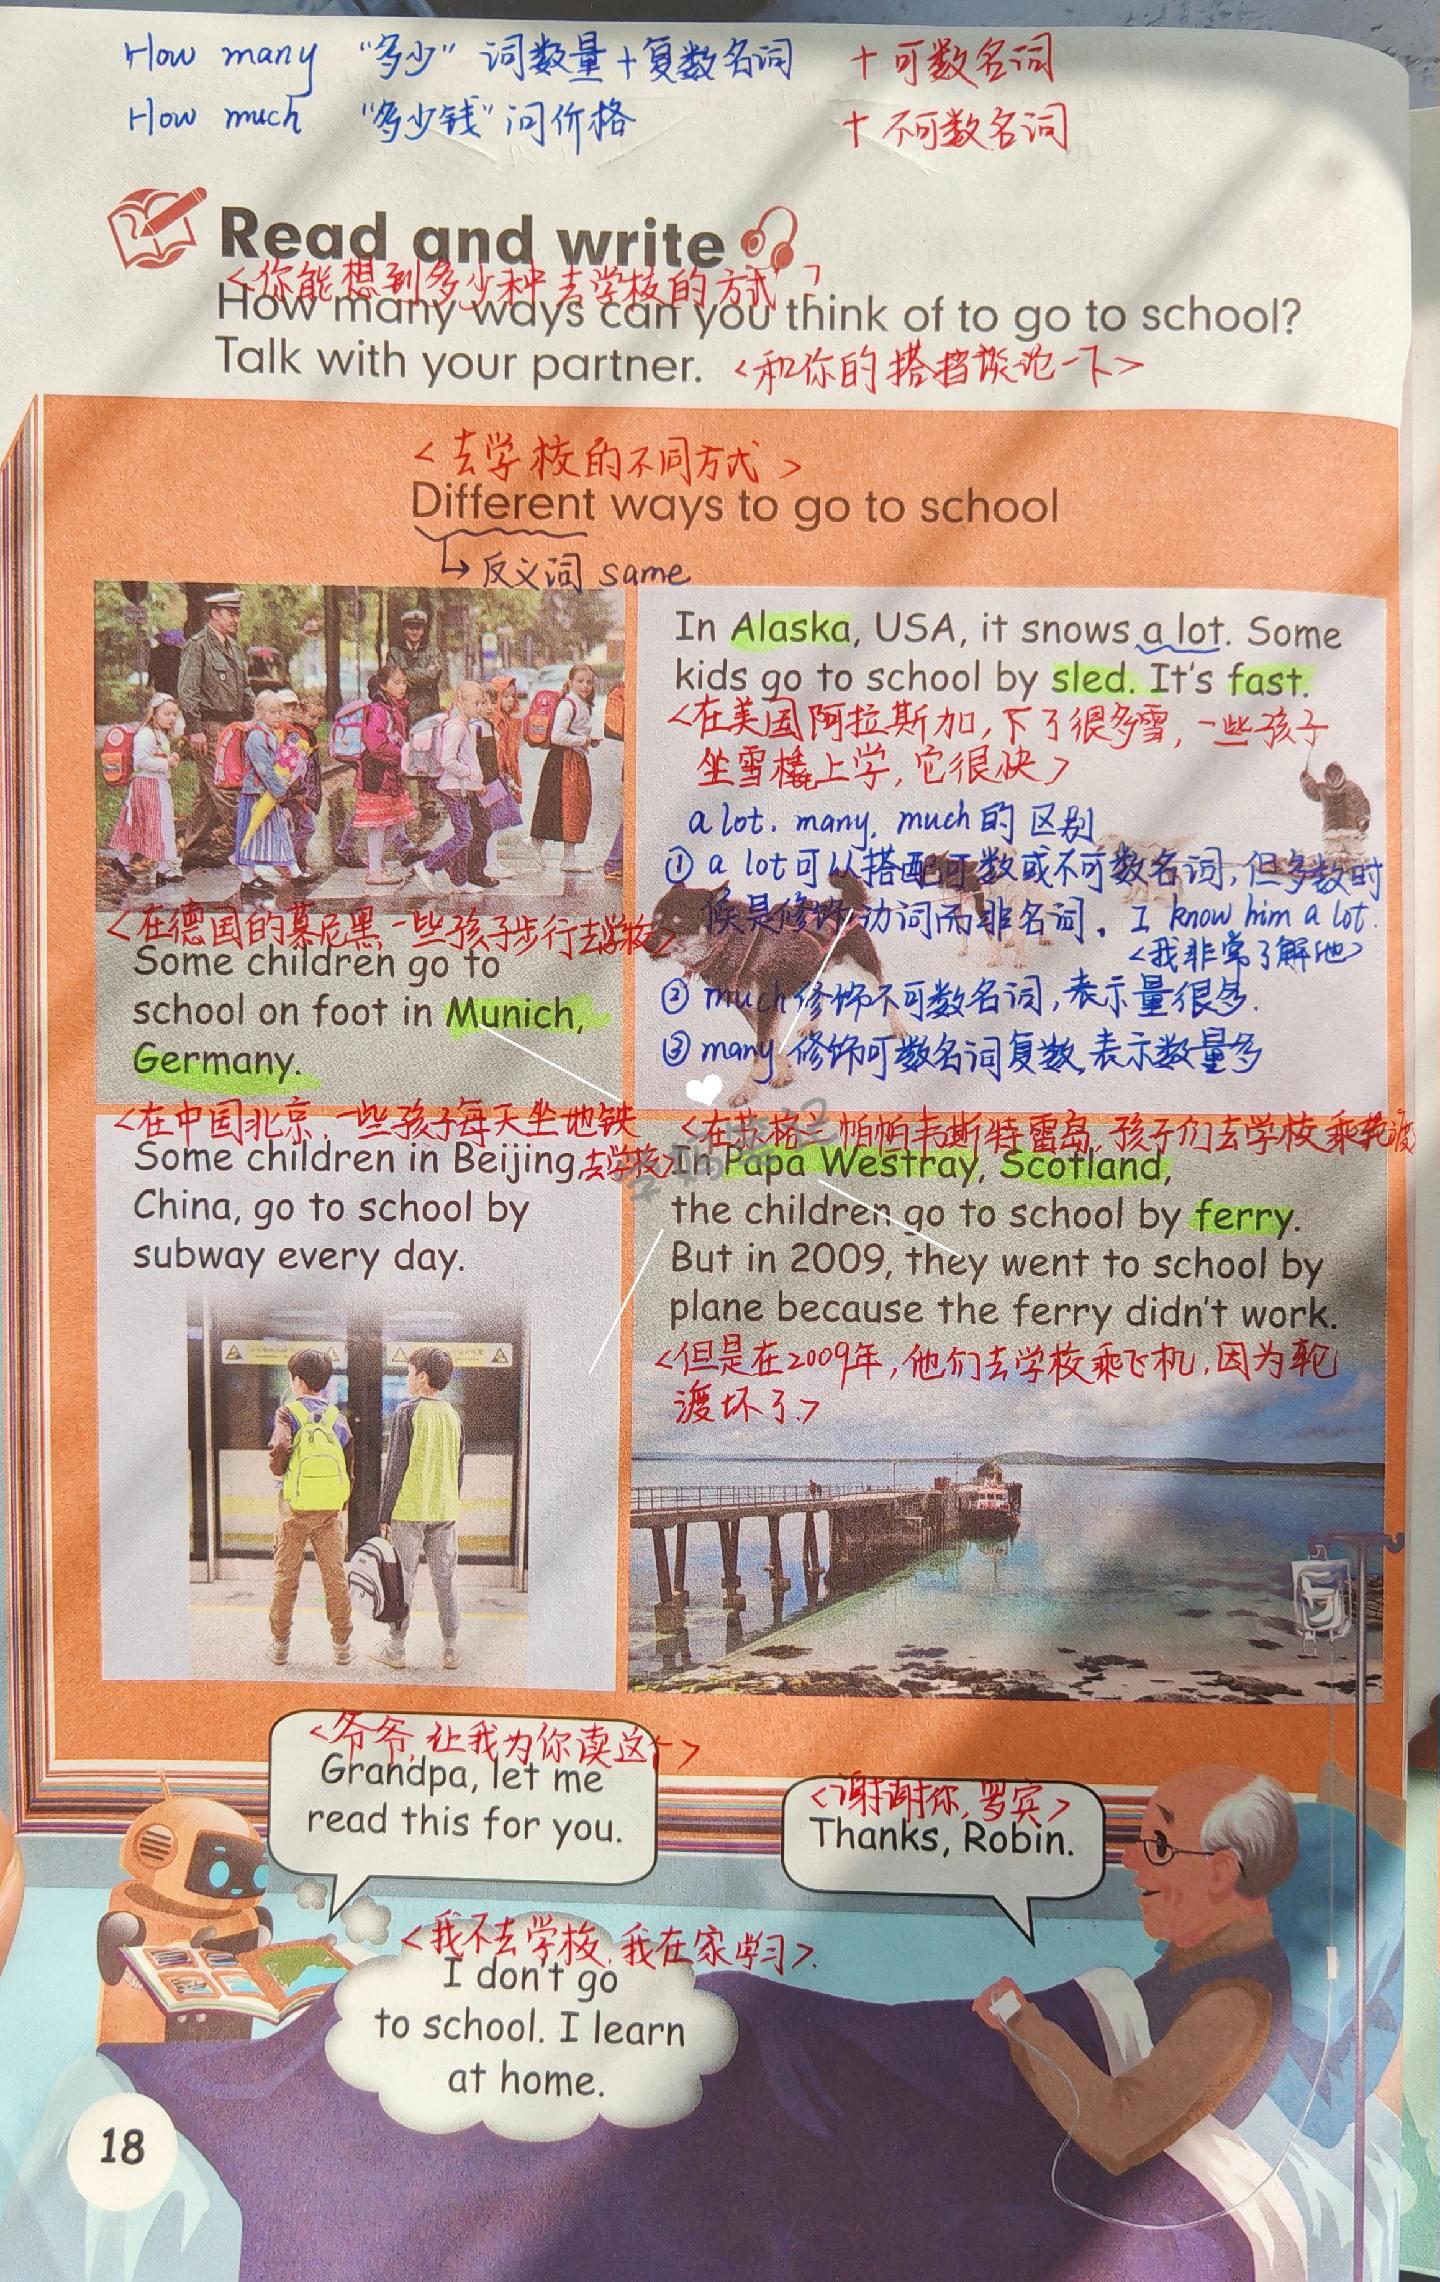 How many "多少" 词数量+复数名词 +可数名词
How much "多少钱"问价格 +不可数名词
Read and write
<你能想到多少种去学校的方式>
How many ways can you think of to go to school?
Talk with your partner. <和你的搭档谈论一下>
<去学校的不同方式>
Different ways to go to school
↳反义词 same
<在德国的慕尼黑,一些孩子步行去学校>
Some children go to
school on foot in Munich,
Germany.
In Alaska, USA, it snows a lot. Some
kids go to school by sled. It's fast.
<在美国阿拉斯加,下了很多雪,一些孩子
坐雪橇上学,它很快>
a lot. many. much的区别
① a lot可以搭配可数或不可数名词,但多数时
候是修饰动词而非名词. I know him a lot.
<我非常了解他>
② much修饰不可数名词,表示量很多.
③ many 修饰可数名词复数,表示数量多
<在中国北京,一些孩子每天坐地铁
去学校>
Some children in Beijing,
China, go to school by
subway every day.
<在苏格兰帕帕韦斯特雷岛,孩子们去学校乘轮渡
In Papa Westray, Scotland,
the children go to school by ferry.
But in 2009, they went to school by
plane because the ferry didn't work.
<但是在2009年,他们去学校乘飞机,因为轮
渡坏了.>
<爷爷,让我为你读这个>
Grandpa, let me
read this for you.
<谢谢你,罗宾>
Thanks, Robin.
<我不去学校,我在家学习>.
I don't go
to school. I learn
at home.
18